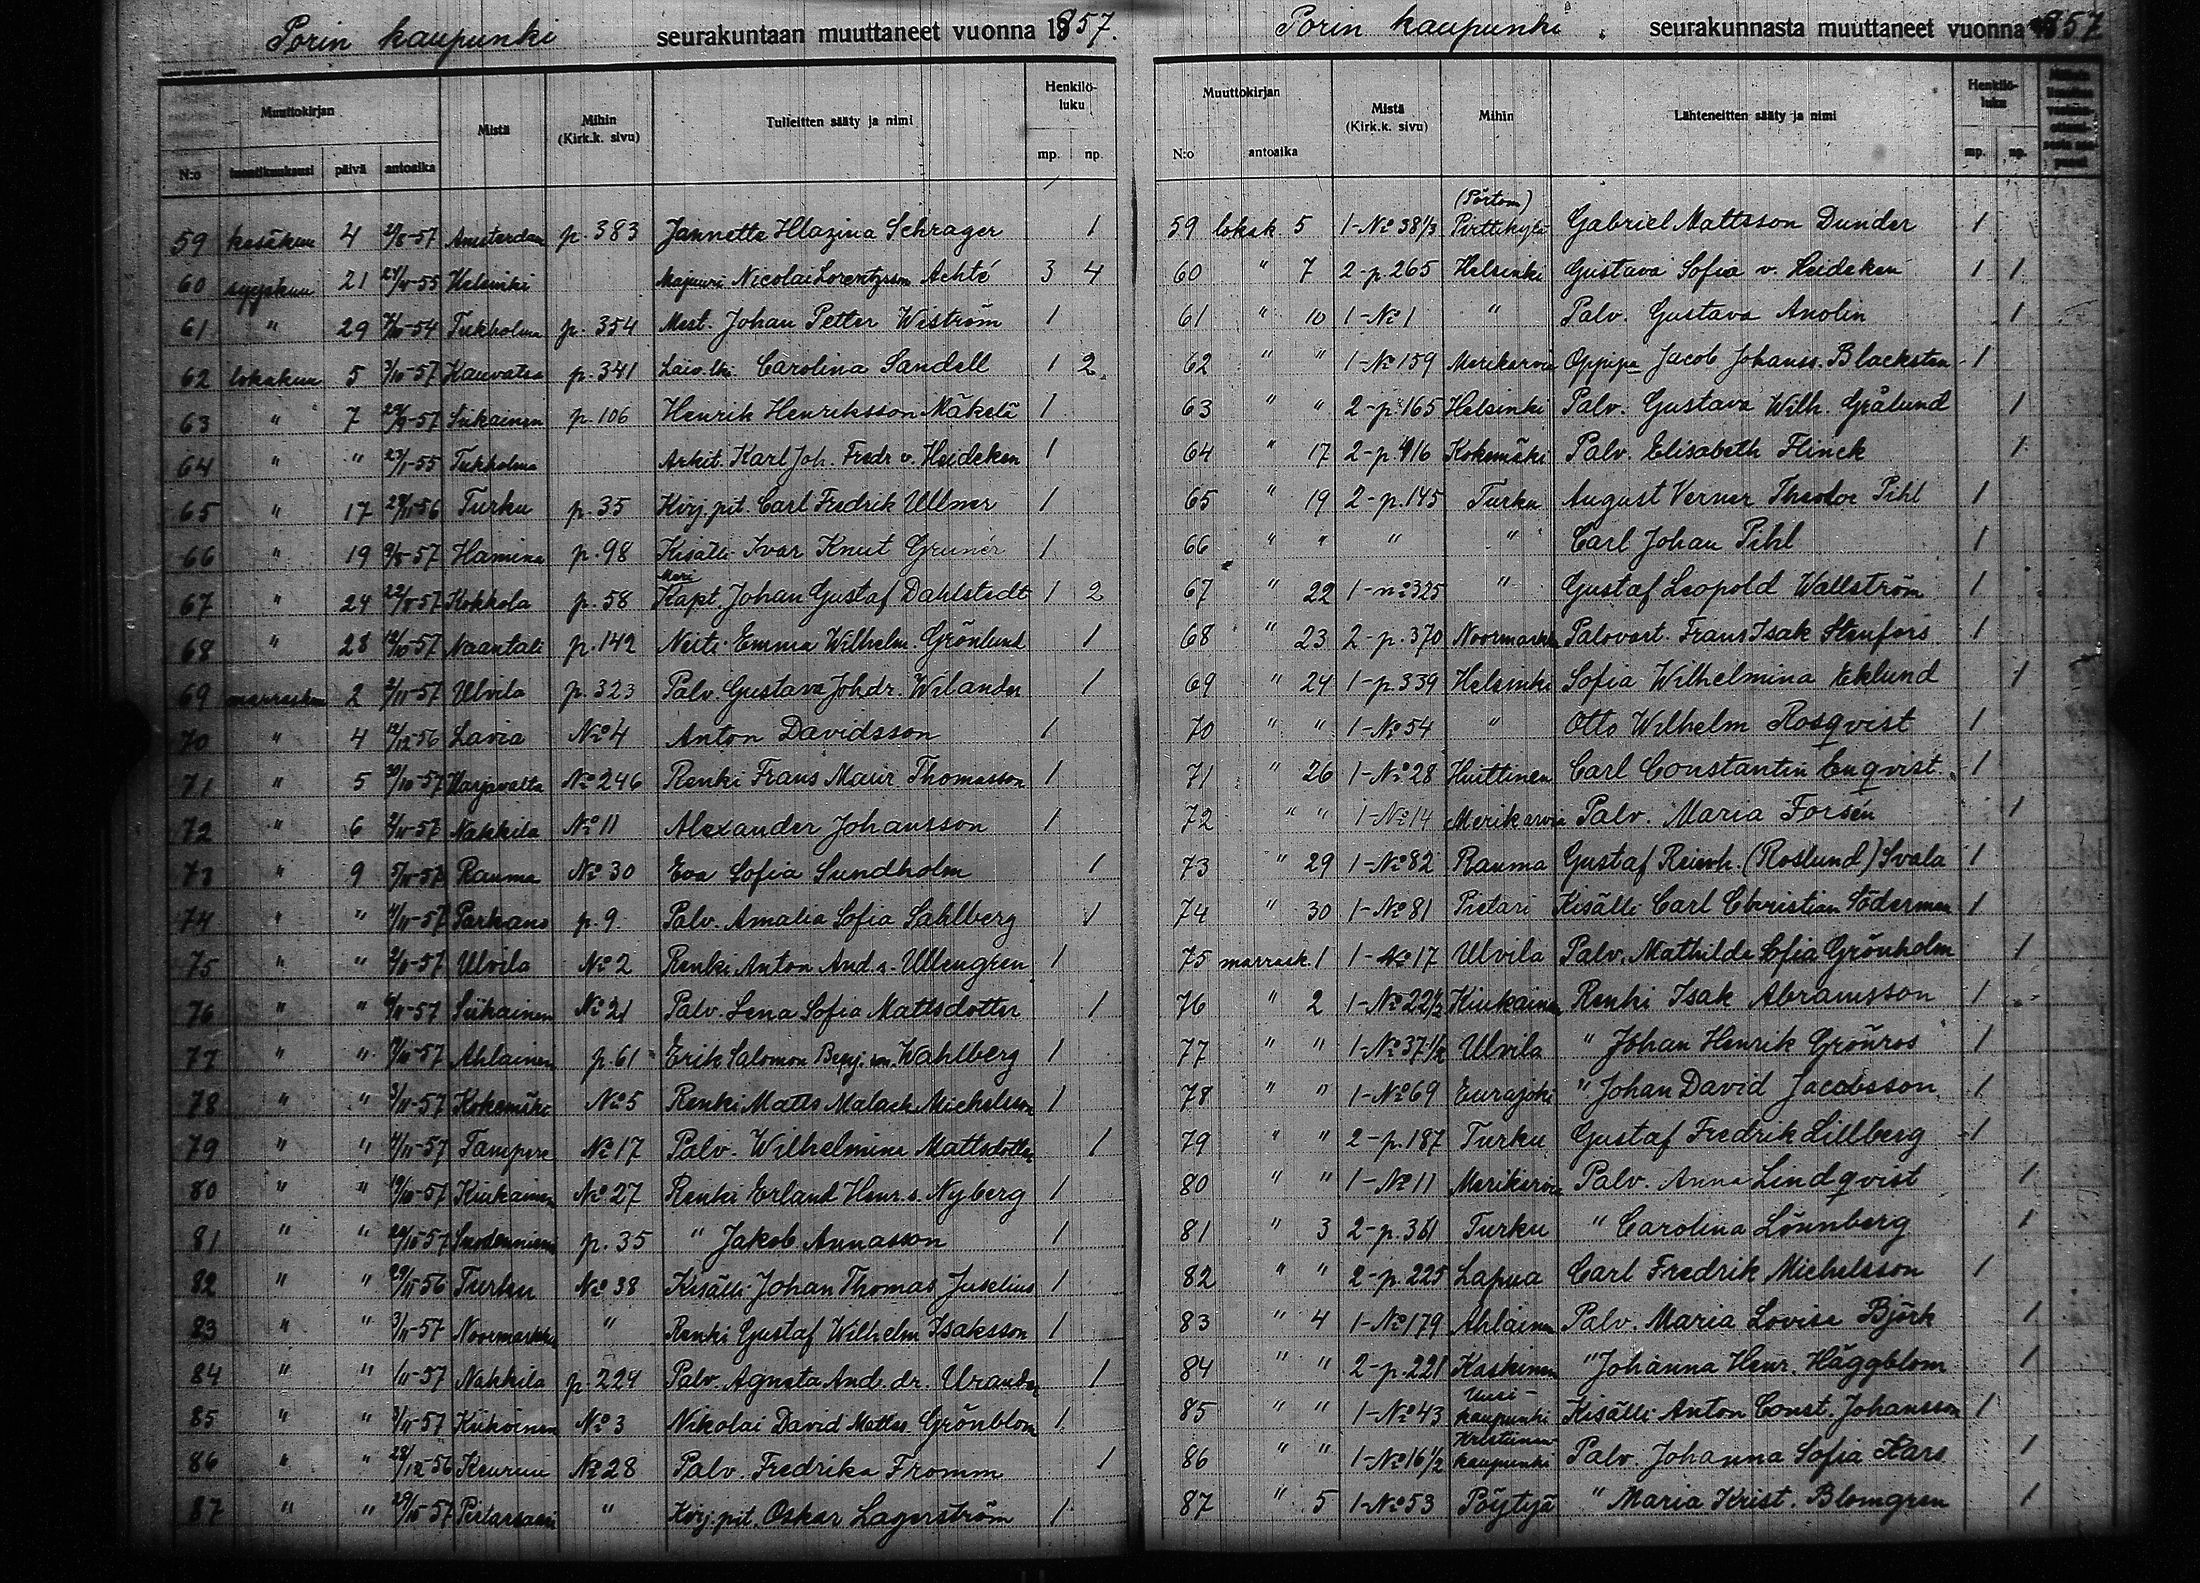 Porin kaupunki seurakuntaan muuttaneet vuonna 1857.
Muuttokirjan Mistä Mihin (Kirk.k. sivu) Tulleitten sääty ja nimi Henkilö-luku
N:o päivä antoaika mp. np.
59 kesäkuu 4 2/8-57 Amsterdam p. 383 Jannette Hlazina Schrager 1
60 syyskuu 21 Helsinki Majuuri Nicolai Lorentzson Achté 3 4
61 " 29 Tukholma p. 354 Mest. Johan Petter Wiström 1
62 lokakuu 5 3/10-57 Kauvatsa p. 341 Carolina Sandell 1 2
63 " 7 29/9-57 Siikainen p. 106 Henrik Henriksson Mäkelä 1
64 " " Tukholma Arkit. Karl Joh. Fredr v. Heideken 1
65 " 17 Turku p. 35 Kirj.pit. Carl Fredrik Ullner 1
66 " 19 Hamina p. 98 Kisälli Ivar Knut Grunér 1
67 " 24 Kokkola p. 58 Meri Kapt Johan Gustaf Dahlstedt 1 2
68 " 28 12/10-57 Naantali p. 142 Neiti Emma Wilhelm. Grönlund 1
69 marraskuu 2 2/11-57 Ulvila p. 323 Palv. Gustava Johdr. Wilander 1
70 " 4 12/12-56 Lavia No 4 Anton Davidsson 1
71 " 5 30/10-57 Harjavalta No 246 Renki Frans Maur Thomasson 1
72 " 6 Nakkila No 11 Alexander Johansson 1
73 " 9 5/11-57 Rauma No 30 Eva Sofia Sundholm 1
74 " " 4/11-57 Parkano p. 9 Palv. Amalia Sofia Sahlberg 1
75 " " Ulvila No 2 Renki Anton And.s. Ullengren 1
76 " " Siikainen No 21 Palv. Lena Sofia Mattsdotter 1
77 " " Ahlainen p. 61 Erik Salomon Benj.son Wahlberg 1
78 " " 3/11-57 Kokemäki No 5 Renki Matts Malach Michelsson 1
79 " " 4/11-57 Tampere No 17 Palv. Wilhelmina Mattsdotter 1
80 " " 19/10-57 Kiukainen No 27 Renki Erland Henr.s. Nyberg 1
81 " " 29/10-57 Suodenniemi p. 35 " Jakob Annasson 1
82 " " Turku No 38 Kisälli Johan Thomas Juselius 1
83 " " 3/11-57 Noormarkku " Renki Gustaf Wilhelm Isaksson 1
84 " " Nakkila p 224 Palv. Agneta And.dr. 1
85 " " 3/11-57 Kiikoinen No 3 Nikolai David Mattss Grönblom 1
86 " " 28/12-56 Keuruu No 28 Palv. Fredrika Fromm 1
87 " " 29/10-57 Pietarsaari " Kirj.pit. Oskar Lagerström 1
Porin kaupunki seurakunnasta muuttaneet vuonna 1857
Muuttokirjan Mistä (Kirk.k. sivu) Mihin Lähteneitten sääty ja nimi Henkilö-luku
N:o antoaika mp. np.
59 lokak 5 1-No 38 1/3 (Pörtom) Pirttikylä Gabriel Mattsson Dunder 1
60 " 7 2-p. 265 Helsinki Gustava Sofia v. Heideken 1 1
61 " 10 1-No 1 " Palv. Gustava Anolin 1
62 " " 1-No 159 Merikarvia Oppipo Jacob Johanss. Blacksten 1
63 " " 2-p. 165 Helsinki Palv. Gustava Wilh. Grålund 1
64 " 17 2-p. 416 Kokemäki Palv. Elisabeth Flinck 1
65 " 19 2-p. 145 Turku August Verner Theodor Pihl 1
66 " " " " Carl Johan Pihl 1
67 " 22 1-no 325 " Gustaf Leopold Wallström 1
68 " 23 2-p. 370 Noormarkku Palovart. Frans Isak Stenfors 1
69 " 24 1-p 339 Helsinki Sofia Wilhelmina Eklund 1
70 " " 1-No 54 " Otto Wilhelm Rosqvist 1
71 " 26 1-No 28 Huittinen Carl Constantin Enqvist 1
72 " " 1-No 14 Merikarvia Palv. Maria Forsén 1
73 " 29 1-No 82 Rauma Gustaf Reinh. (Roslund) Svala 1
74 " 30 1-No 81 Pietari Kisälli Carl Christian Söderman 1
75 marrask. 1 1-No 17 Ulvila Palv. Mathilda Sofia Grönholm 1
76 " 2 1-No 22 1/2 Kiukainen Renki Isak Abramsson 1
77 " " 1-No 37 1/2 Ulvila " Johan Henrik Grönros 1
78 " " 1-No 69 Eurajoki " Johan David Jacobsson 1
79 " " 2-p. 187 Turku Gustaf Fredrik Lillberg 1
80 " " 1-No 11 Merikarvia Palv. Anna Lindqvist 1
81 " 3 2-p. 361 Turku " Carolina Lönnberg 1
82 " " 2-p. 225 Lapua Carl Fredrik Michelsson 1
83 " 4 1-No 179 Ahlainen Palv. Maria Lovisa Björk 1
84 " " 2-p. 221 Kaskinen " Johanna Henr. Häggblom 1
85 " " 1-No 43 Uusi-kaupunki Kisälli Anton Const. Johansson 1
86 " " 1-No 16 1/2 Kristiinan-kaupunki Palv. Johanna Sofia Kars 1
87 " 5 1-No 53 Pöytyä " Maria Krist. Blomgren 1